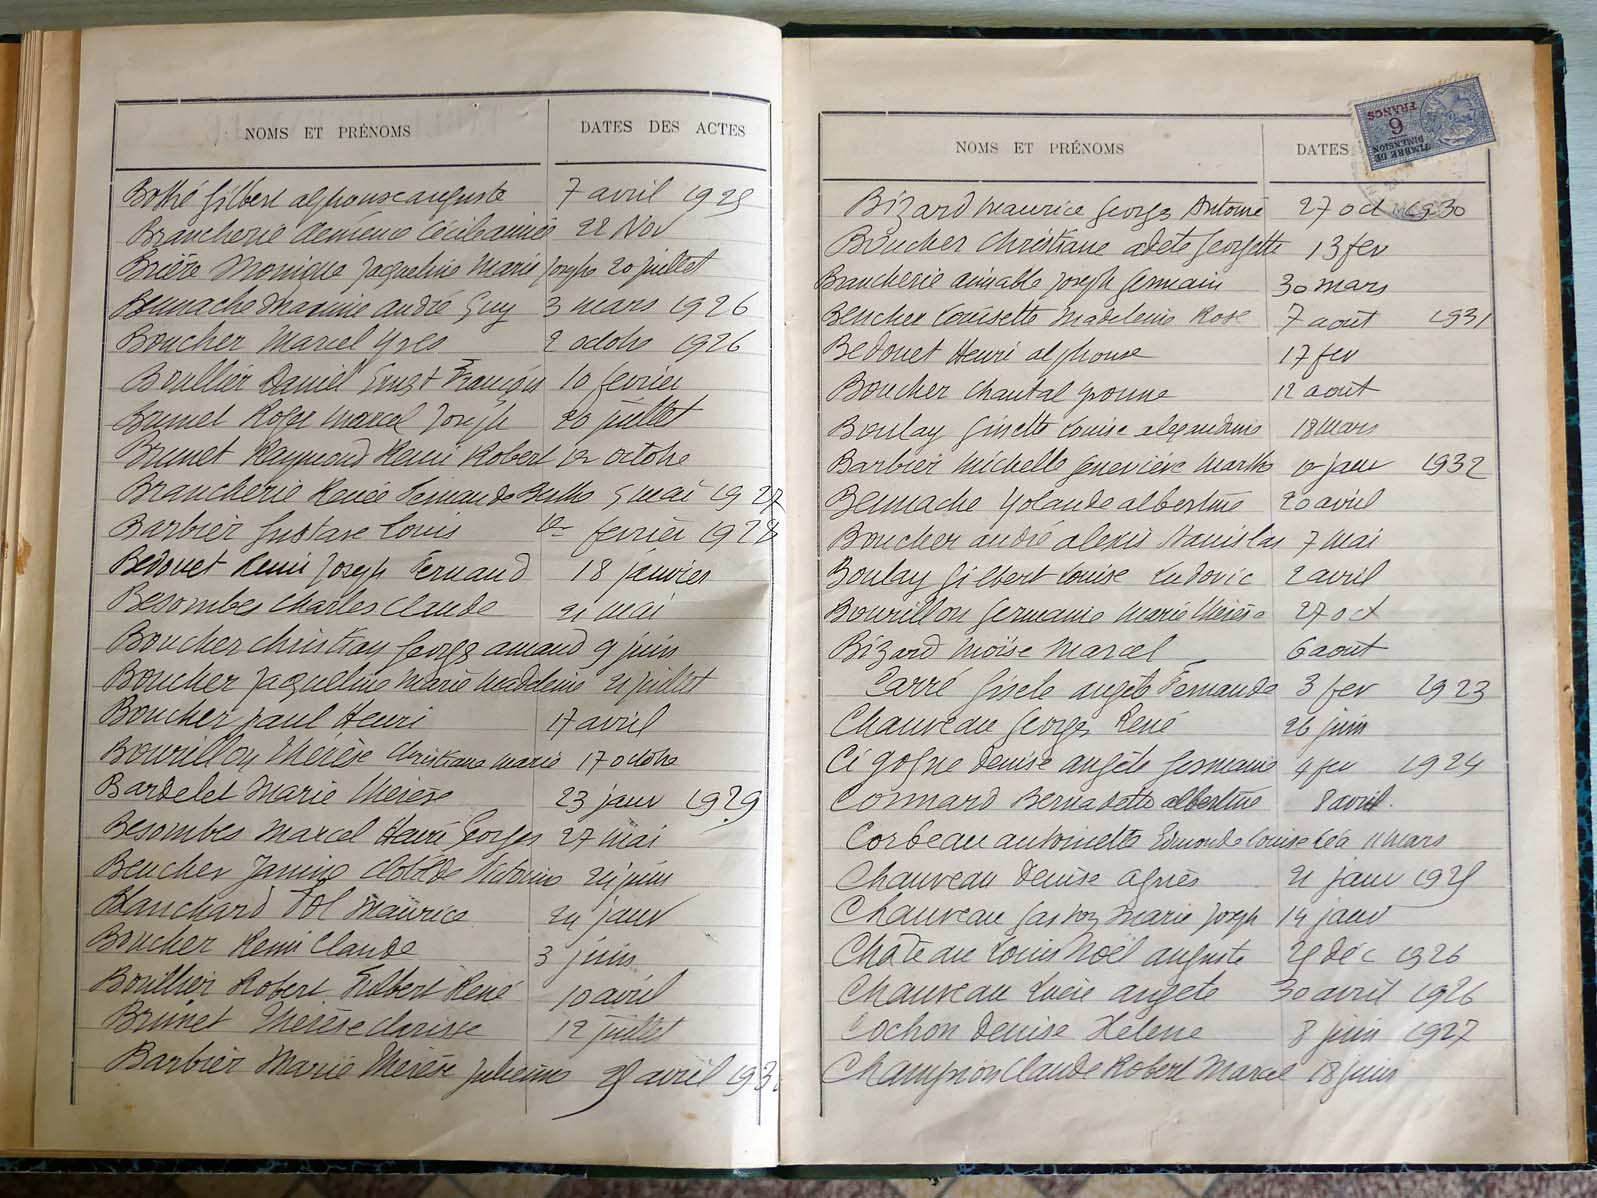 NOMS ET PRÉNOMS
DATES DES ACTES
Gilbert alphonse auguste 7 avril 1925
Brancherie 22 Nov
Brière Monique Jaqueline Marie Joseph 20 juillet
Maxime andré Guy 3 mars 1926
Boucher Marcel Yves 2 octobre 1926
Boullier Daniel François 10 fevrier
Brunet Roger Marcel Joseph 20 juillet
Brunet Raymond Remi Robert octobre
Brancherie Renée Fernande Berthe 5 mai 1927
Barbier Gustave Louis 1er fevrier 1928
Bedouet Remi Joseph Fernand 18 janvier
Besombes Charles Claude 21 mai
Boucher Christian Georges amand 9 juin
Boucher Jaqueline Marie Madeleine 21 juillet
Boucher paul Henri 17 avril
Bourillon Thérèse Christiane Marie 17 octobre
Bardelet Marie Thérèse 23 janv 1929
Besombes Marcel Henri Georges 27 mai
Beucher Janine Clotilde Victorine 24 juin
Blanchard Pol Maurice 24 janv
Boucher Remi Claude 3 juin
Boullier Robert Filbert René 10 avril
Brunet Thérèse Clarisse 12 juillet
Barbier Marie Thérèse Julienne 25 avril
NOMS ET PRÉNOMS
DATES
TIMBRE DE
DIMENSION
6
FRANCS
Bizard Maurice Georges Antoine 27 oct 1930
Boucher Christiane Georgette 13 fev
Brancherie aimable Joseph Germain 30 mars
Beucher Louisette Madeleine Rose 7 août 1931
Bedouet Henri alphonse 17 fev
Boucher Chantal yvonne 12 août
Boulay Ginette Louise alexandrine 18 mars
Barbier Michelle Geneviève Marthe janv 1932
Yolande albertine 20 avril
Boucher andré alexis Stanislas 7 mai
Boulay Gilbert Louise Ludovic 2 avril
Bourillon Germaine Marie Thérèse 27 oct
Bizard Moïse Marcel 6 août
Carré Gisele angèle Fernande 3 fev 1923
Chauveau Georges René 26 juin
Cigogne Denise angèle Germaine 4 fev 1924
Connard Bernadette albertine 8 avril.
Corbeau antoinette Edmonde Louise Léa 11 mars
Chauveau Denise agnès 21 janv 1925
Chauveau Gaston Marie Joseph 14 janv
Château Louis Noël auguste 25 déc 1926
Chauveau Lucie angele 30 avril 1926
Cochon Denise Helene 8 juin 1927
Champion Claude Robert Marcel 18 juin